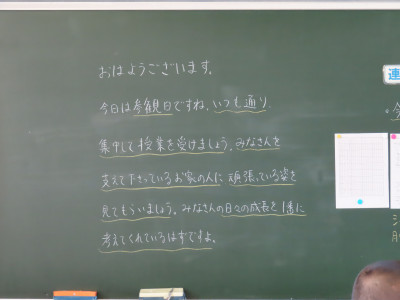 おはようございます。
今日は参観日ですね。いつも通り、
集中して授業を受けましょう。みなさんを
支えて下さっているお家の人に頑張っている姿を
見てもらいましょう。みなさんの日々の成長を1番に
考えてくれているはずですよ。
連